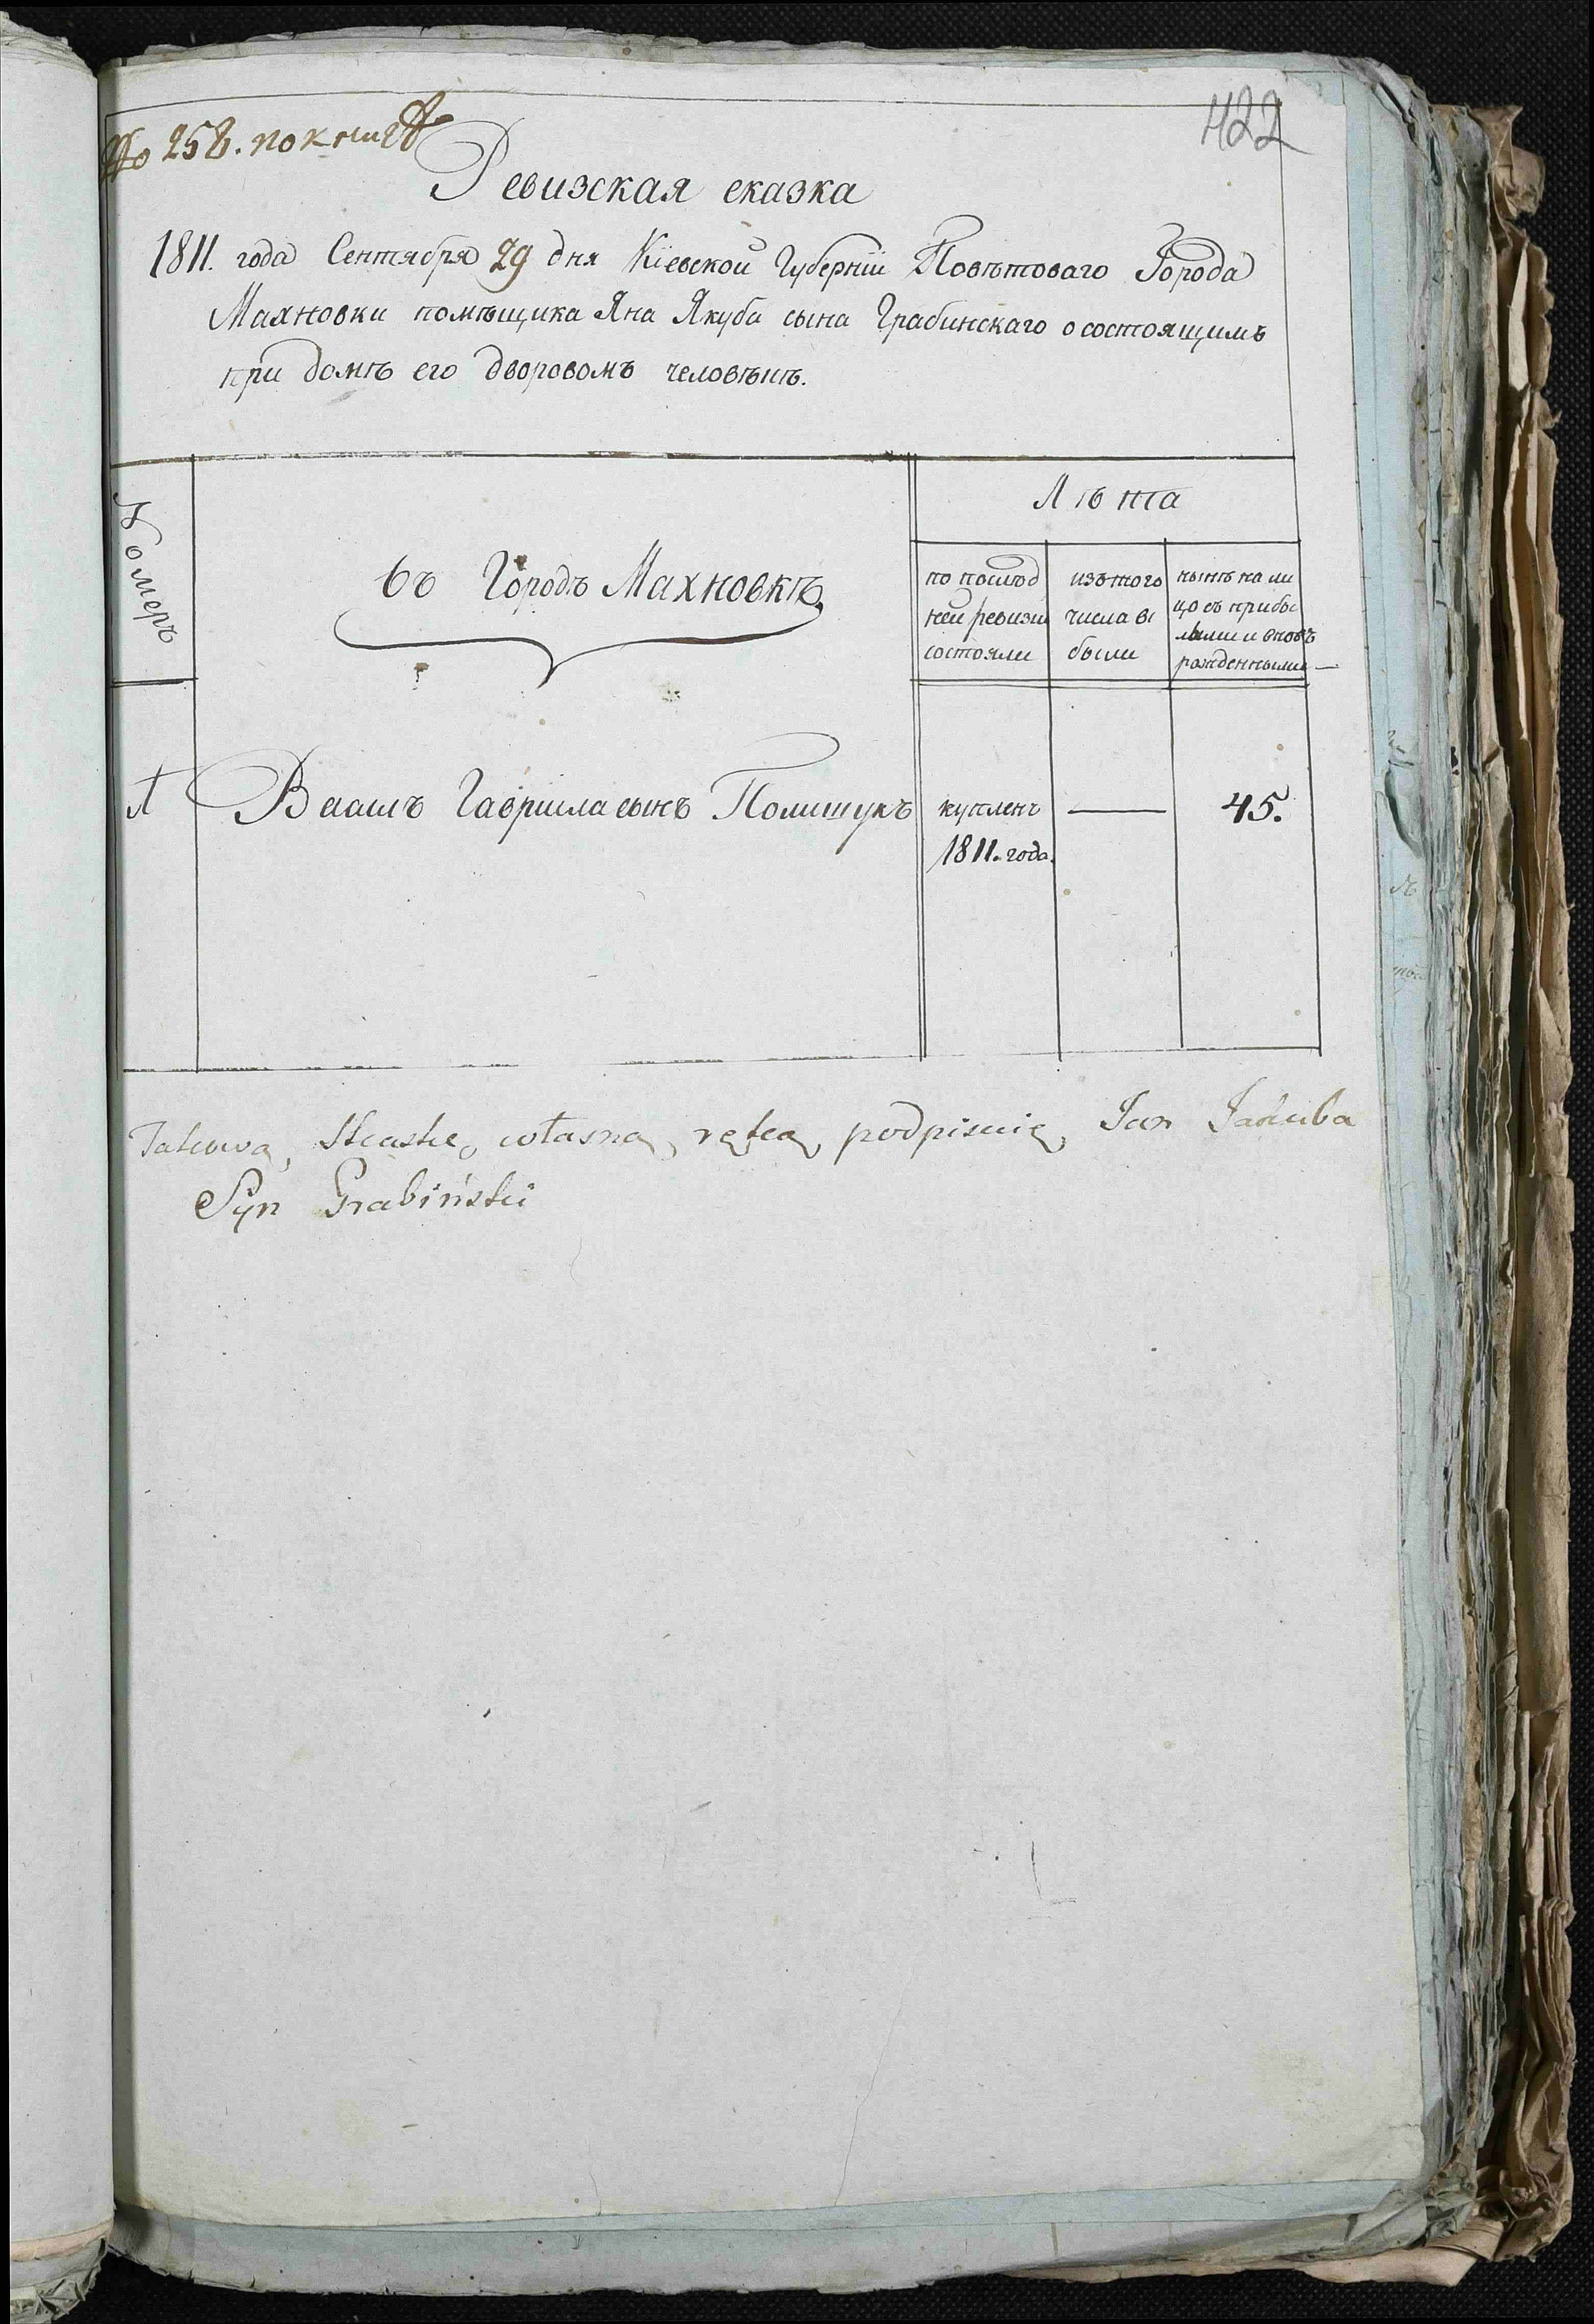 № 258. по книгѣ
422
Ревизская сказка
1811. года Сентября 29 дня Кіевской Губерніи Повѣтоваго Города
Махновки помѣщика Яна Якуба сына Грабинскаго о состоящимъ
при домѣ его дворовомъ человѣкѣ.
Номеръ
въ Городѣ Махновкѣ
Лѣта
по послѣд
ней ревизіи
состояли
изъ того
числа вы
были
нынѣ на ли
цо съ прибы
лыми и вновь
рожденными
1
Гаврила сынъ Полищукъ
купленъ
1811. года.
45.
Takową Skaskę własną ręką podpisuię Jan Jakuba
Syn Grabiński